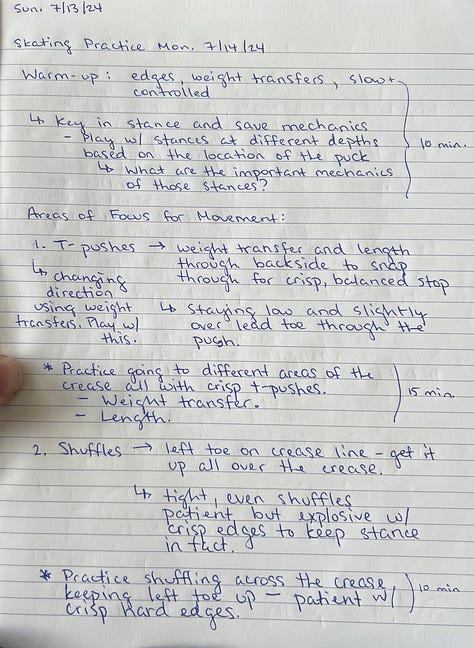 Sun. 7/13/24
Skating Practice Mon. 7/14/24
Warm-up: edges, weight transfers, slow +
controlled
↳ Key in stance and save mechanics
- Play w/ stances at different depths
based on the location of the puck
↳ what are the important mechanics
of those stances?
10 min.
Areas of Focus for Movement:
1. T-pushes → weight transfer and length
through backside to snap
through for crisp, balanced stop
↳ changing
direction
using weight
transfers. Play w/
this.
↳ Staying low and slightly
over lead toe through the
push.
* Practice going to different areas of the
crease all with crisp t-pushes.
- Weight transfer.
- Length.
15 min.
2. Shuffles → left toe on crease line - get it
up all over the crease.
↳ tight, even shuffles
patient but explosive w/
crisp edges to keep stance
in tact.
* Practice shuffling across the crease
keeping left toe up - patient w/
crisp hard edges.
10 min